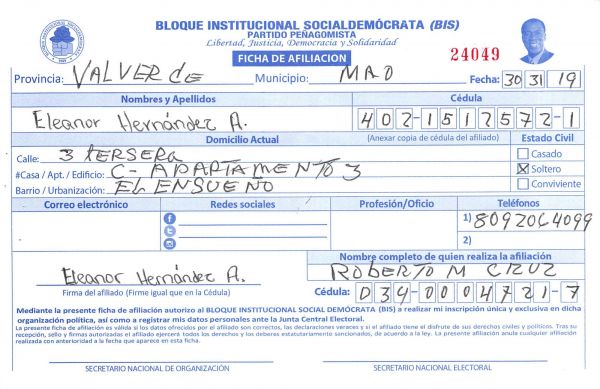 BLOQUE INSTITUCIONAL SOCIALDEMÓCRATA (BIS)
PARTIDO PEÑAGOMISTA
Libertad, Justicia, Democracia y Solidaridad
FICHA DE AFILIACION
24049
Provincia: VALVERde Municipio: MAO Fecha: 30 31 19
Nombres y Apellidos Cédula
Eleanor Hernández A. 402-1512572-1
Domicilio Actual (Anexar copia de cédula del afiliado) Estado Civil
Calle: 3 tersera Casado
#Casa / Apt. / Edificio: C- APARTAMENTO 3 Soltero
Barrio / Urbanización: EL ENSUENO Conviviente
Correo electrónico Redes sociales Profesión/Oficio Teléfonos
1) 8092064099
2)
Nombre completo de quien realiza la afiliación
Eleanor Hernández A. ROBERTO M CRUZ
Firma del afiliado (Firme igual que en la Cédula) Cédula: 034-0004721-7
Mediante la presente ficha de afiliación autorizo al BLOQUE INSTITUCIONAL SOCIAL DEMÓCRATA (BIS) a realizar mi inscripción única y exclusiva en dicha
organización política, así como a registrar mis datos personales ante la Junta Central Electoral.
La presente ficha de afiliación es válida si los datos ofrecidos por el afiliado son correctos, las declaraciones veraces y si el afiliado tiene el disfrute de sus derechos civiles y políticos. Tras su
recepción, sello y firmas autorizadas el afiliado ejercerá todos los derechos y los deberes estatutariamente sancionados, de acuerdo a la ley. La presente afiliación anula cualquier afiliación
realizada con anterioridad a la fecha que aparece en esta ficha.
SECRETARIO NACIONAL DE ORGANIZACIÓN SECRETARIO NACIONAL ELECTORAL